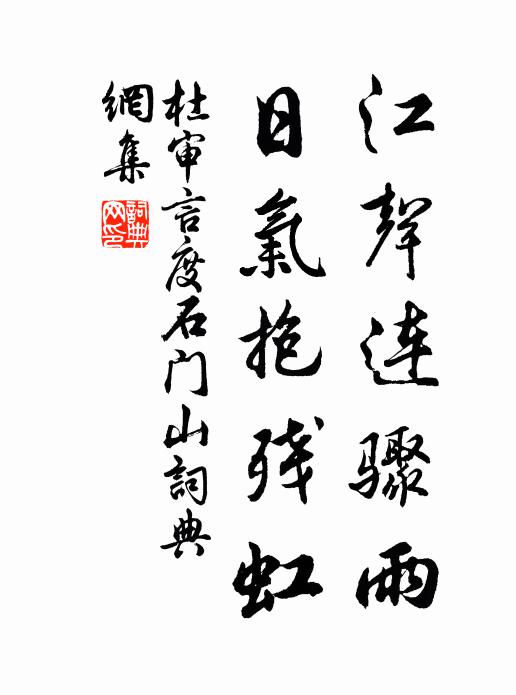 江聲連驟雨
日氣抱残虹
杜审言度石门山詞典
網集
詞典网印